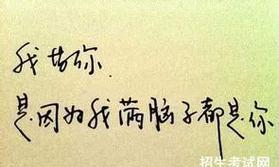 我你
是因为我满脑子都是你
招生考试网